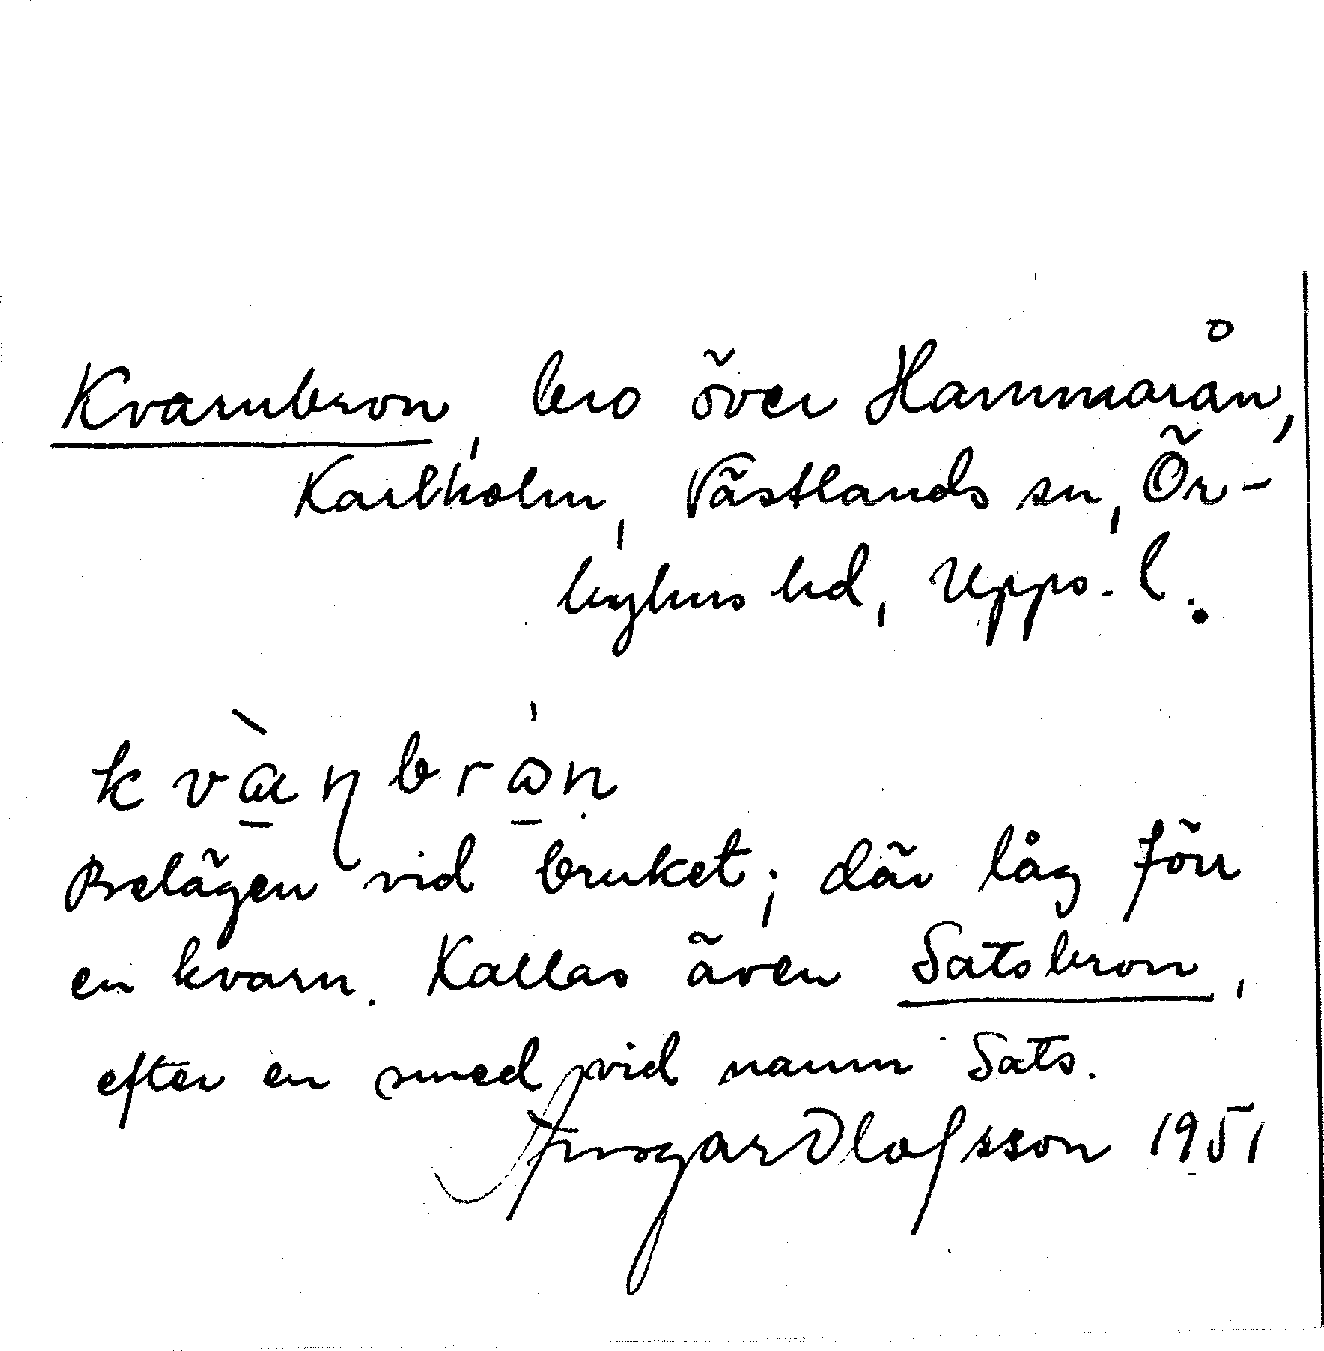 Kvarnbron, bro över Hammarån,
Karlholm, Västlands sn, Ör-
byhus hd, Upps. l.
kvà̱ɳbrώ̱n
Belägen vid bruket; där låg förr
en kvarn. Kallas även Satsbron,
efter en smed vid namn Sats.
Ansgar Olofsson 1951